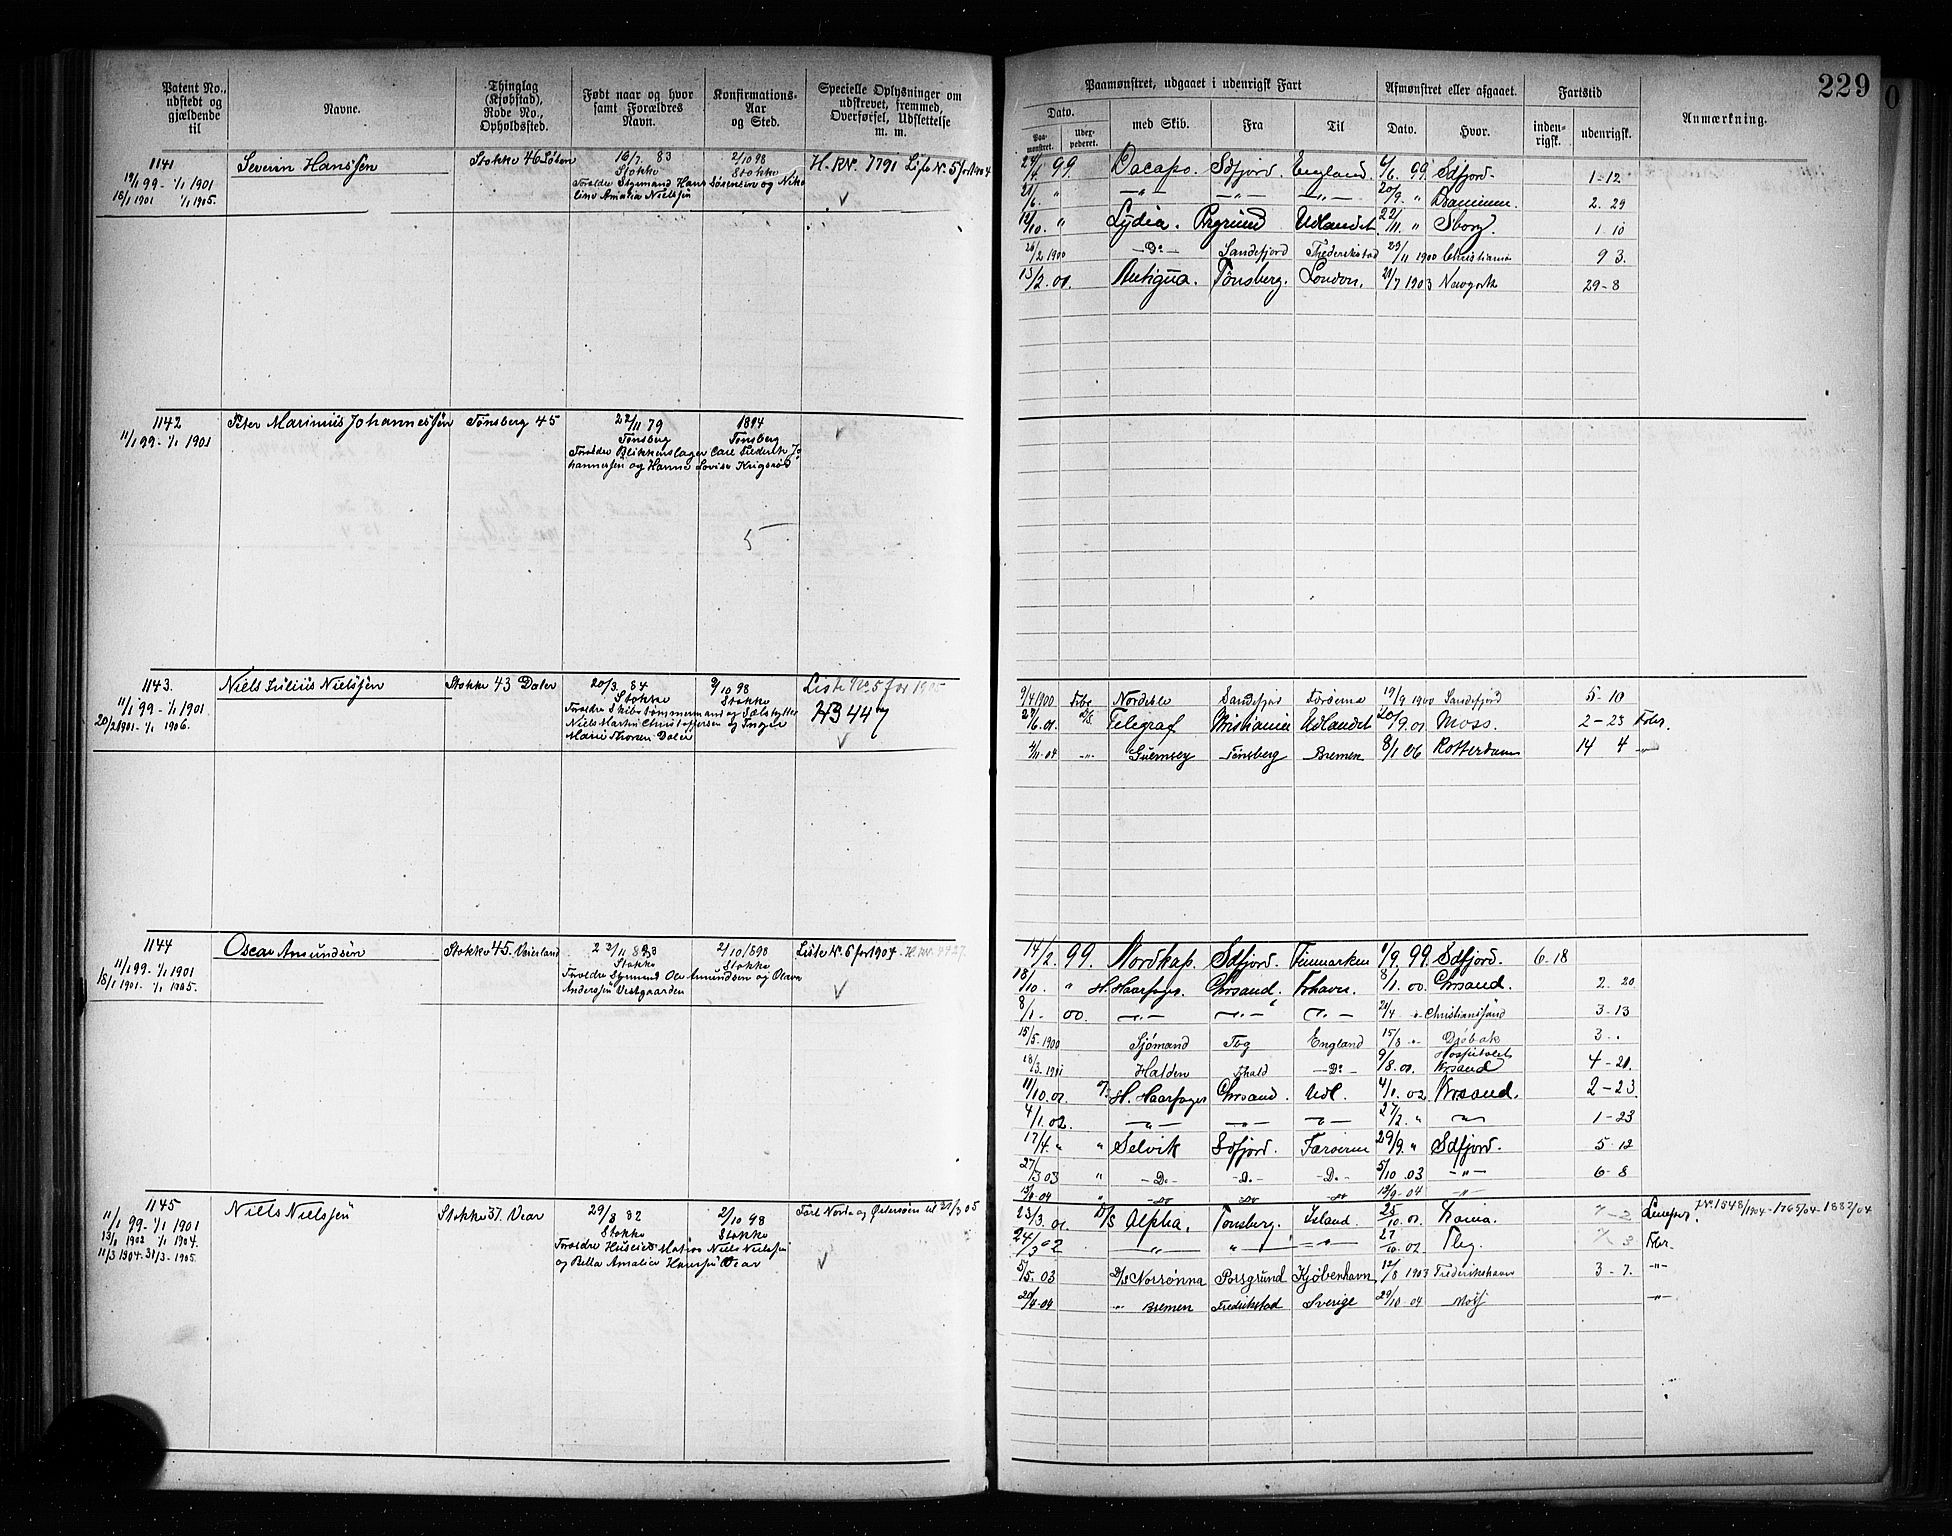 229
Patent No., udstedt og gjældende til
Navne.
Thinglag (Kjøbstad), Rode No., Opholdssted.
Født naar og hvor samt Forældres Navn.
Konfirmations- Aar og Sted.
Specielle Oplysninger om udskrevet, fremmed, Overførsel, Udslettelse m. m.
Paamønstret, udgaaet i udenrigsk Fart
Afmønstret eller afgaaet.
Fartstid
Anmærkning.
Dato.
Paa- mønstret.
med Skib.
Fra
Til
Dato.
Hvor.
inden- rigsk.
udenrigsk.
1141
19/1 99 - 1/1 1901
18/1 1901 1/1 1905.
Severin Hanssen
Stokke 46
16/7. 83
Stokke
Forældre Sigemand Hans Sørensen og Niko
line Amalia Nielsen
2/10 98
Stokke
H. RN. 7791 Liste N. 5 for 1904
24/4 99. Dacapo. Sdfjord. England. 6/6. 99. Sdfjord. 1-12
21/6. " —"— —"— —"— 20/9. " 2. 29
12/10. " Lydia. Prgrund Udlandet. 22/11. " Sborg. 1 10
26/2 1900 —Do— Sandefjord Frederikstad 29/11 1900 Christiania 9 3.
15/2. 01. Antigua. Tønsberg. London. 21/7 1903 Newyork 29-8
1142
11/1 99 - 1/1 1901
Peter Marinius Johannessen
Tønsberg 45
22/11 79
Tønsberg
Forældre Blikkenslager Carl Frederik Jo
hannessen og Hanna Lovise Krigsrød
1894
Tønsberg
5
1143.
11/1 99 - 1/1 1901
20/2 1901 - 1/1 1906.
Niels Julius Nielsen
Stokke 43 Dalen
20/3. 84
Stokke
Forældre Skibstømmermand og Sælskytter
Niels Martin Christoffersen og Inger
Marie Thoren Dalen
2/10 98
Stokke
Liste No 5 for 1905
H3447
9/4 1900 Nordsble Sandefjord 19/9 1900 Sandefjord 5-10
27/6. 01. D/S. Telegraf Kristiania Udlandet 20/9. 01 Moss. 2-23 Fbr.
4/11. 04 —"— Guernsey Tønsberg Bremen 8/1 06 Rotterdam 14 4 —"—
1144
11/1 99 - 1/1 1901
18/1 1901. 1/1 1905.
Oscar Amundsen
Stokke 45. Veierland
Stokke
Forældre Sømand Ole Amundsen og Olava
Andersen Vestgaarden
2/10 1898
Stokke
Liste N. 6 for 1904. H. nr. 4727.
14/2. 99. Nordkap. Sdfjord. Finmarken 1/9. 99. Sdfjord. 6. 18
18/10. " H. Haarfager. Chrsand. Frhavn. 8/1. 00. Chrsand. 2. 20
8/1. 00. —"— —"— —"— 21/4 " Christianssand 3-13
15/5. 1900 Sjømand Tbg England 15/8 " Drøbak 3 "
18/3. 1901 Halden Fhald —Do— 9/8. 01. Hospitalet Krsand 4-21.
11/10. 01 H. Haarfager Chrsand. Udl. 4/1. 02 Krsand. 2-23.
4/1. 02. —"— —"— —"— 27/2. " —"— 1-23
17/4. " " Selvik Sdfjord. Færøerne 29/9. " Sdfjord. 5 12
27/3 03 " —Do— —Do— —Do— 5/10 03 —"— 6-8
13/4 04 " —Do— —Do— —Do— 19/9-04 —"—
1145
11/1 99 - 1/1 1901
13/1 1902 1/1 1904.
11/3 1904. 31/3 - 1905.
Niels Nielsen
Stokke 37. Vear
29/8 82
Stokke
Forældre Huseier Matros Niels Nielsen
og Bella Amalia Hansen Vear
2/10 98
Stokke
Tarl Norta og Østersøen til 31/3 05
23/3. 01. D/S Alpha. Tønsberg. Island. 25/10. 01. 7-2 Lemper. No 1548/1904 - 1765/04 - 1882/04
24/3 02 —"— —"— —"— 27/10. 02 Tbg. 7 3 Fbr.
5/5. 03 D/S Norrønna Porsgrund Kjøbenhavn 12/8 1903 Frederikshavn 3-7. —"—
20/4 04 " Bremen Fredrikstad Sverige 29/10. 04 Moss —"—